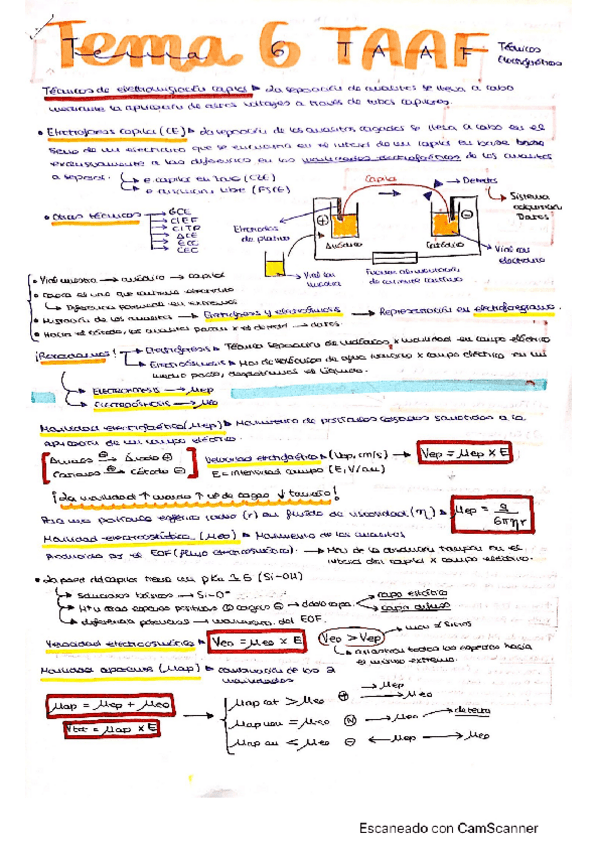 Tema 6 TAAF Técnicas Electroforéticas
Tema 6 TAAF
Técnicas de electromigración capilar ▸ La separación de analitos se lleva a cabo
mediante la aplicación de altos voltajes a través de tubos capilares.
• Electroforesis capilar (CE) ▸ La separación de los analitos cargados se lleva a cabo en el
seno de un electrolito que se encuentra en el interior de un capilar en base
exclusivamente a las diferencias en las movilidades electroforéticas de los analitos
a separar.
e. capilar en zona (CZE)
e. disolución libre (FSCE)
Capilar → Detector
Sistema adquisición Datos
• Otras técnicas
GCE
CIEF
CITP
ACE
ECC
CEC
Electrodos de platino
Anódico
Catódico
Vial con muestra
Fuente alimentación de corriente continua
Vial con electrolito
• Vial muestra → anódico → capilar
Diferencia potencial en extremos
• Migración de los analitos → Electroforesis y electroósmosis → Representación en electroferograma.
• Hacia el cátodo, los analitos pasan x el detector → datos.
¡Recordamos!
Electroforesis ▸ Técnica separación de moléculas x movilidad en campo eléctrico
medio poroso, desplazamos el líquido.
ELECTROFORESIS → μep
ELECTROÓSMOSIS → μeo
Movilidad electroforética (μep) ▸ Movimiento de partículas cargadas sometidas a la
aplicación de un campo eléctrico.
Aniones ⊖ → Ánodo ⊕
Cationes ⊕ → Cátodo ⊖
Velocidad electroforética ▸ (Vep, cm/s) → Vep = μep x E
E = intensidad campo (E, V/cm)
¡La movilidad ↑ cuando ↑ nº de cargas ↓ tamaño!
Para una partícula esférica (radio (r) en fluido de viscosidad (η) ▸ μep = q / 6πηr
Movilidad electroosmótica (μeo) ▸ Movimiento de los analitos
producido x el EOF (flujo electroosmótico). → Mov de la disolución tampón en el
interior del capilar x campo eléctrico.
• La pared del capilar tiene un pKa 1'5 (Si-OH)
silanoles iónicos → Si-O⁻
→ doble capa.
capa estática
capa difusa
diferencia potencial → movimiento del EOF.
Velocidad electroosmótica ▸ Veo = μeo x E
Veo > Vep
arrastran todas las especies hacia
el mismo extremo.
Movilidad aparente (μap) ▸ combinación de las 2
movilidades
μap = μep + μeo
Vtot = μap x E
μap cat > μeo ⊕ → μep → μeo
μap neu = μeo Ⓝ → μeo → detector
μap an < μeo ⊖ ← μep → μeo
Escaneado con CamScanner